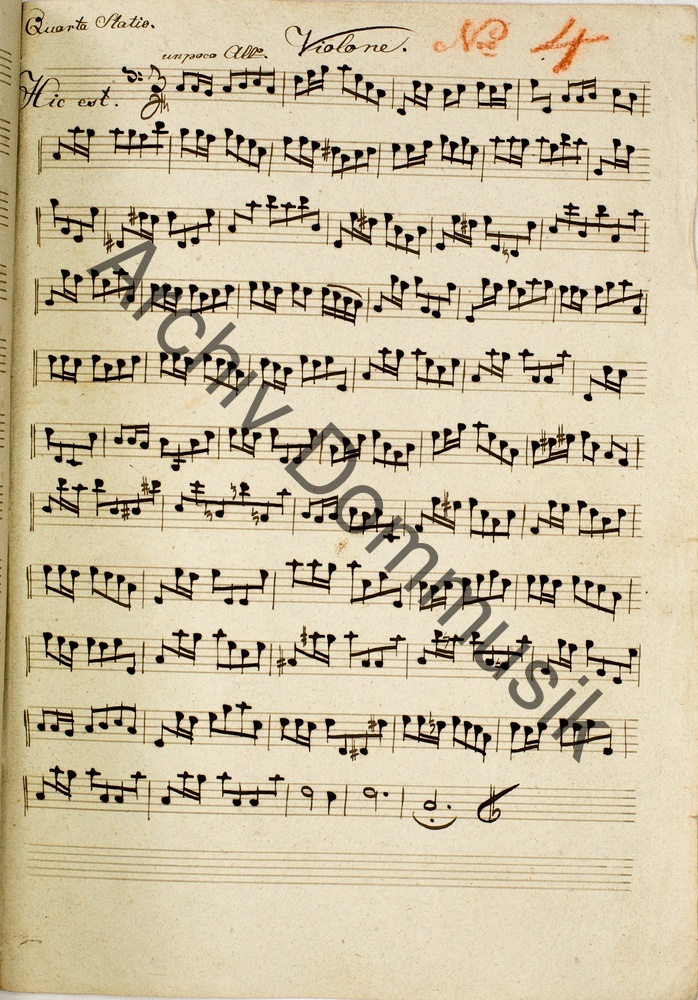 Quarta Statio.
un poco All.o Violone. No 4
Hic est.
Archiv Dommusik